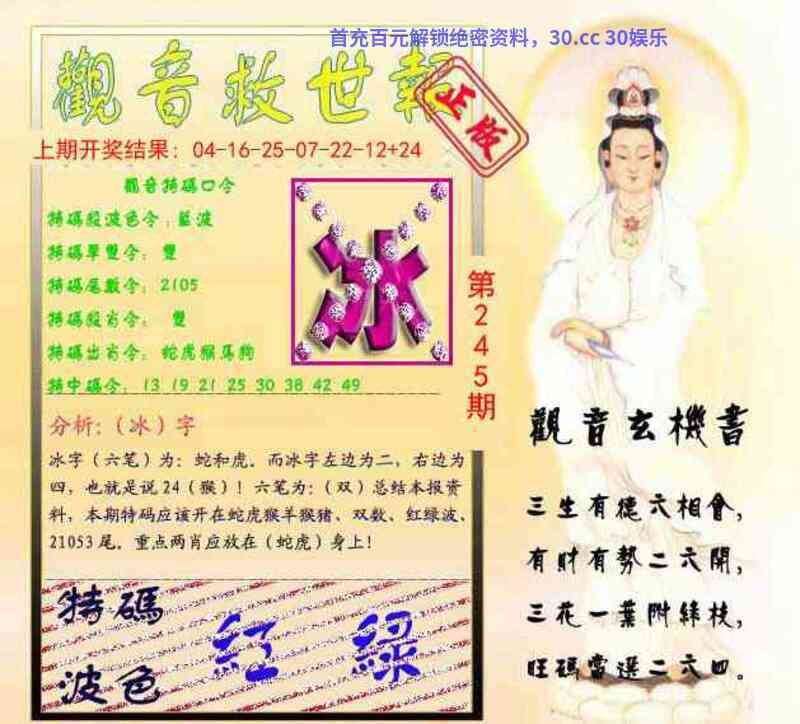 首充百元解锁绝密资料，30.cc 30娱乐
觀音救世報
正版
上期开奖结果：04-16-25-07-22-12+24
觀音特碼口令
特碼殺波色令：藍波
特碼單雙令： 雙
特碼尾數令：2105
特碼殺肖令： 雙
特碼出肖令：蛇虎猴馬狗
特中碼令：13 19 21 25 30 38 42 49
冰
第245期
分析:（冰）字
冰字（六笔）为：蛇和虎。而冰字左边为二，右边为
四，也就是说24（猴）！六笔为：（双）总结本报资
料，本期特码应该开在蛇虎猴羊猴猪、双数、红绿波、
21053尾。重点两肖应放在（蛇虎）身上！
特碼
波色
紅 綠
觀音玄機書
三生有德六相會，
有財有勢二六開，
三花一葉附綠枝，
旺碼當選二六四。